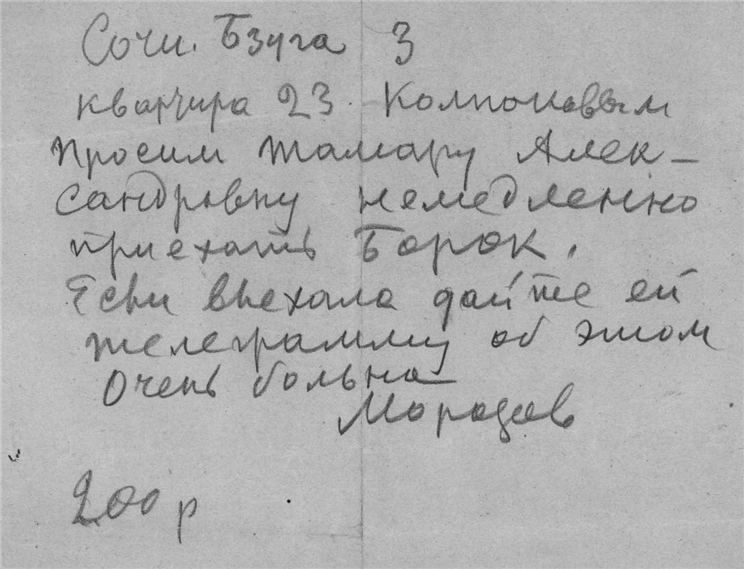 Сочи. Бзуга 3
квартира 23. Колпоновым
просим Тамару Алек-
сандровну немедленно
приехать Борок.
Если выехала дайте ей
телеграмму об этом
Очень больна
Морозов
200 р